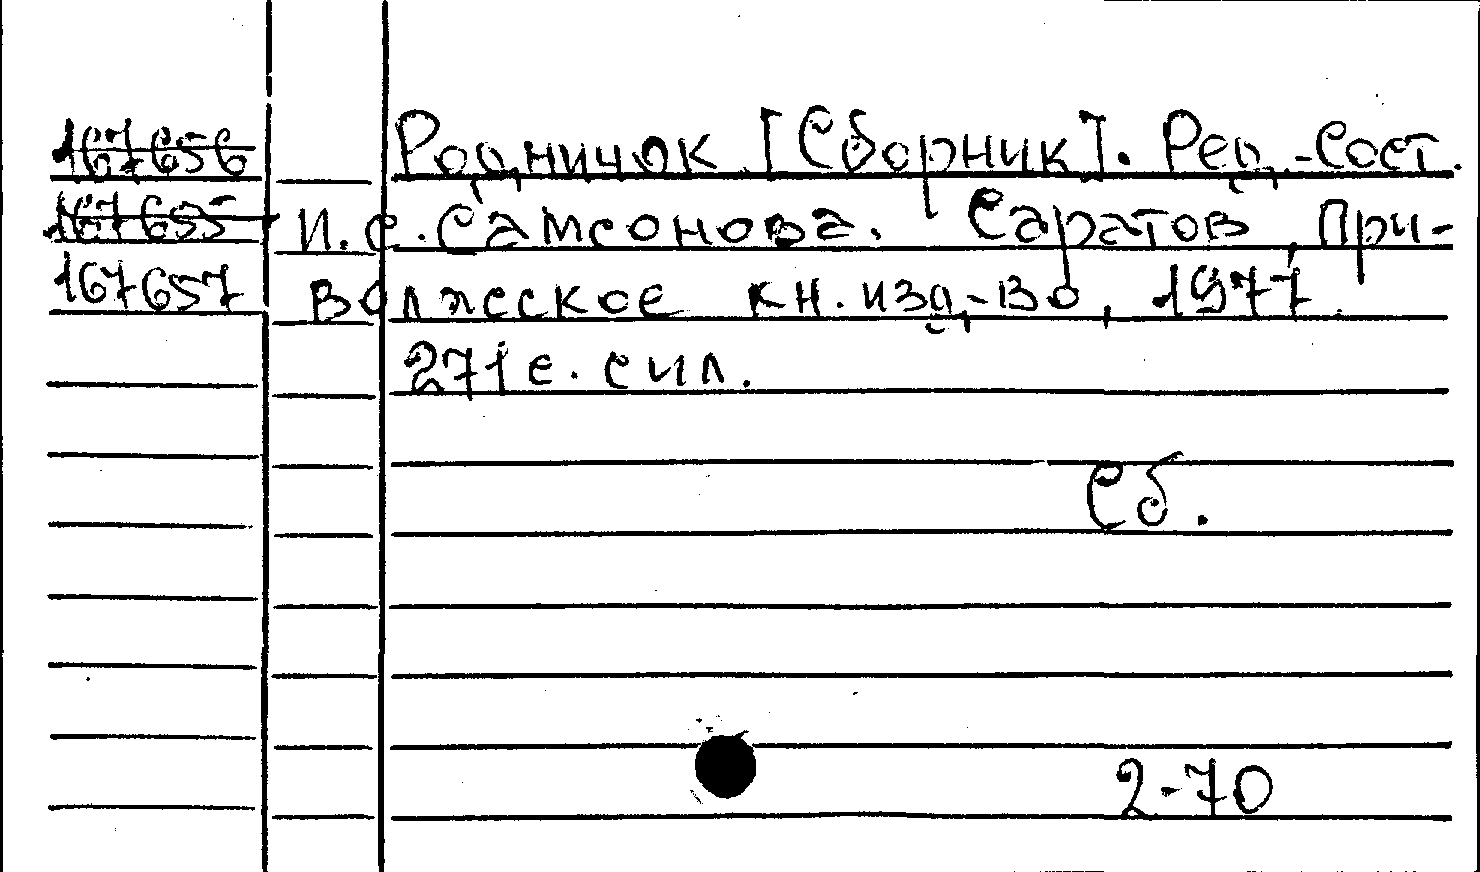 167656 Родничок [Сборник]. Ред.-Сост.
167655 И. С. Самсонова. Саратов, При-
167657 волжское кн. изд-во, 1977.
271 с. с ил.
Сб.
2-70